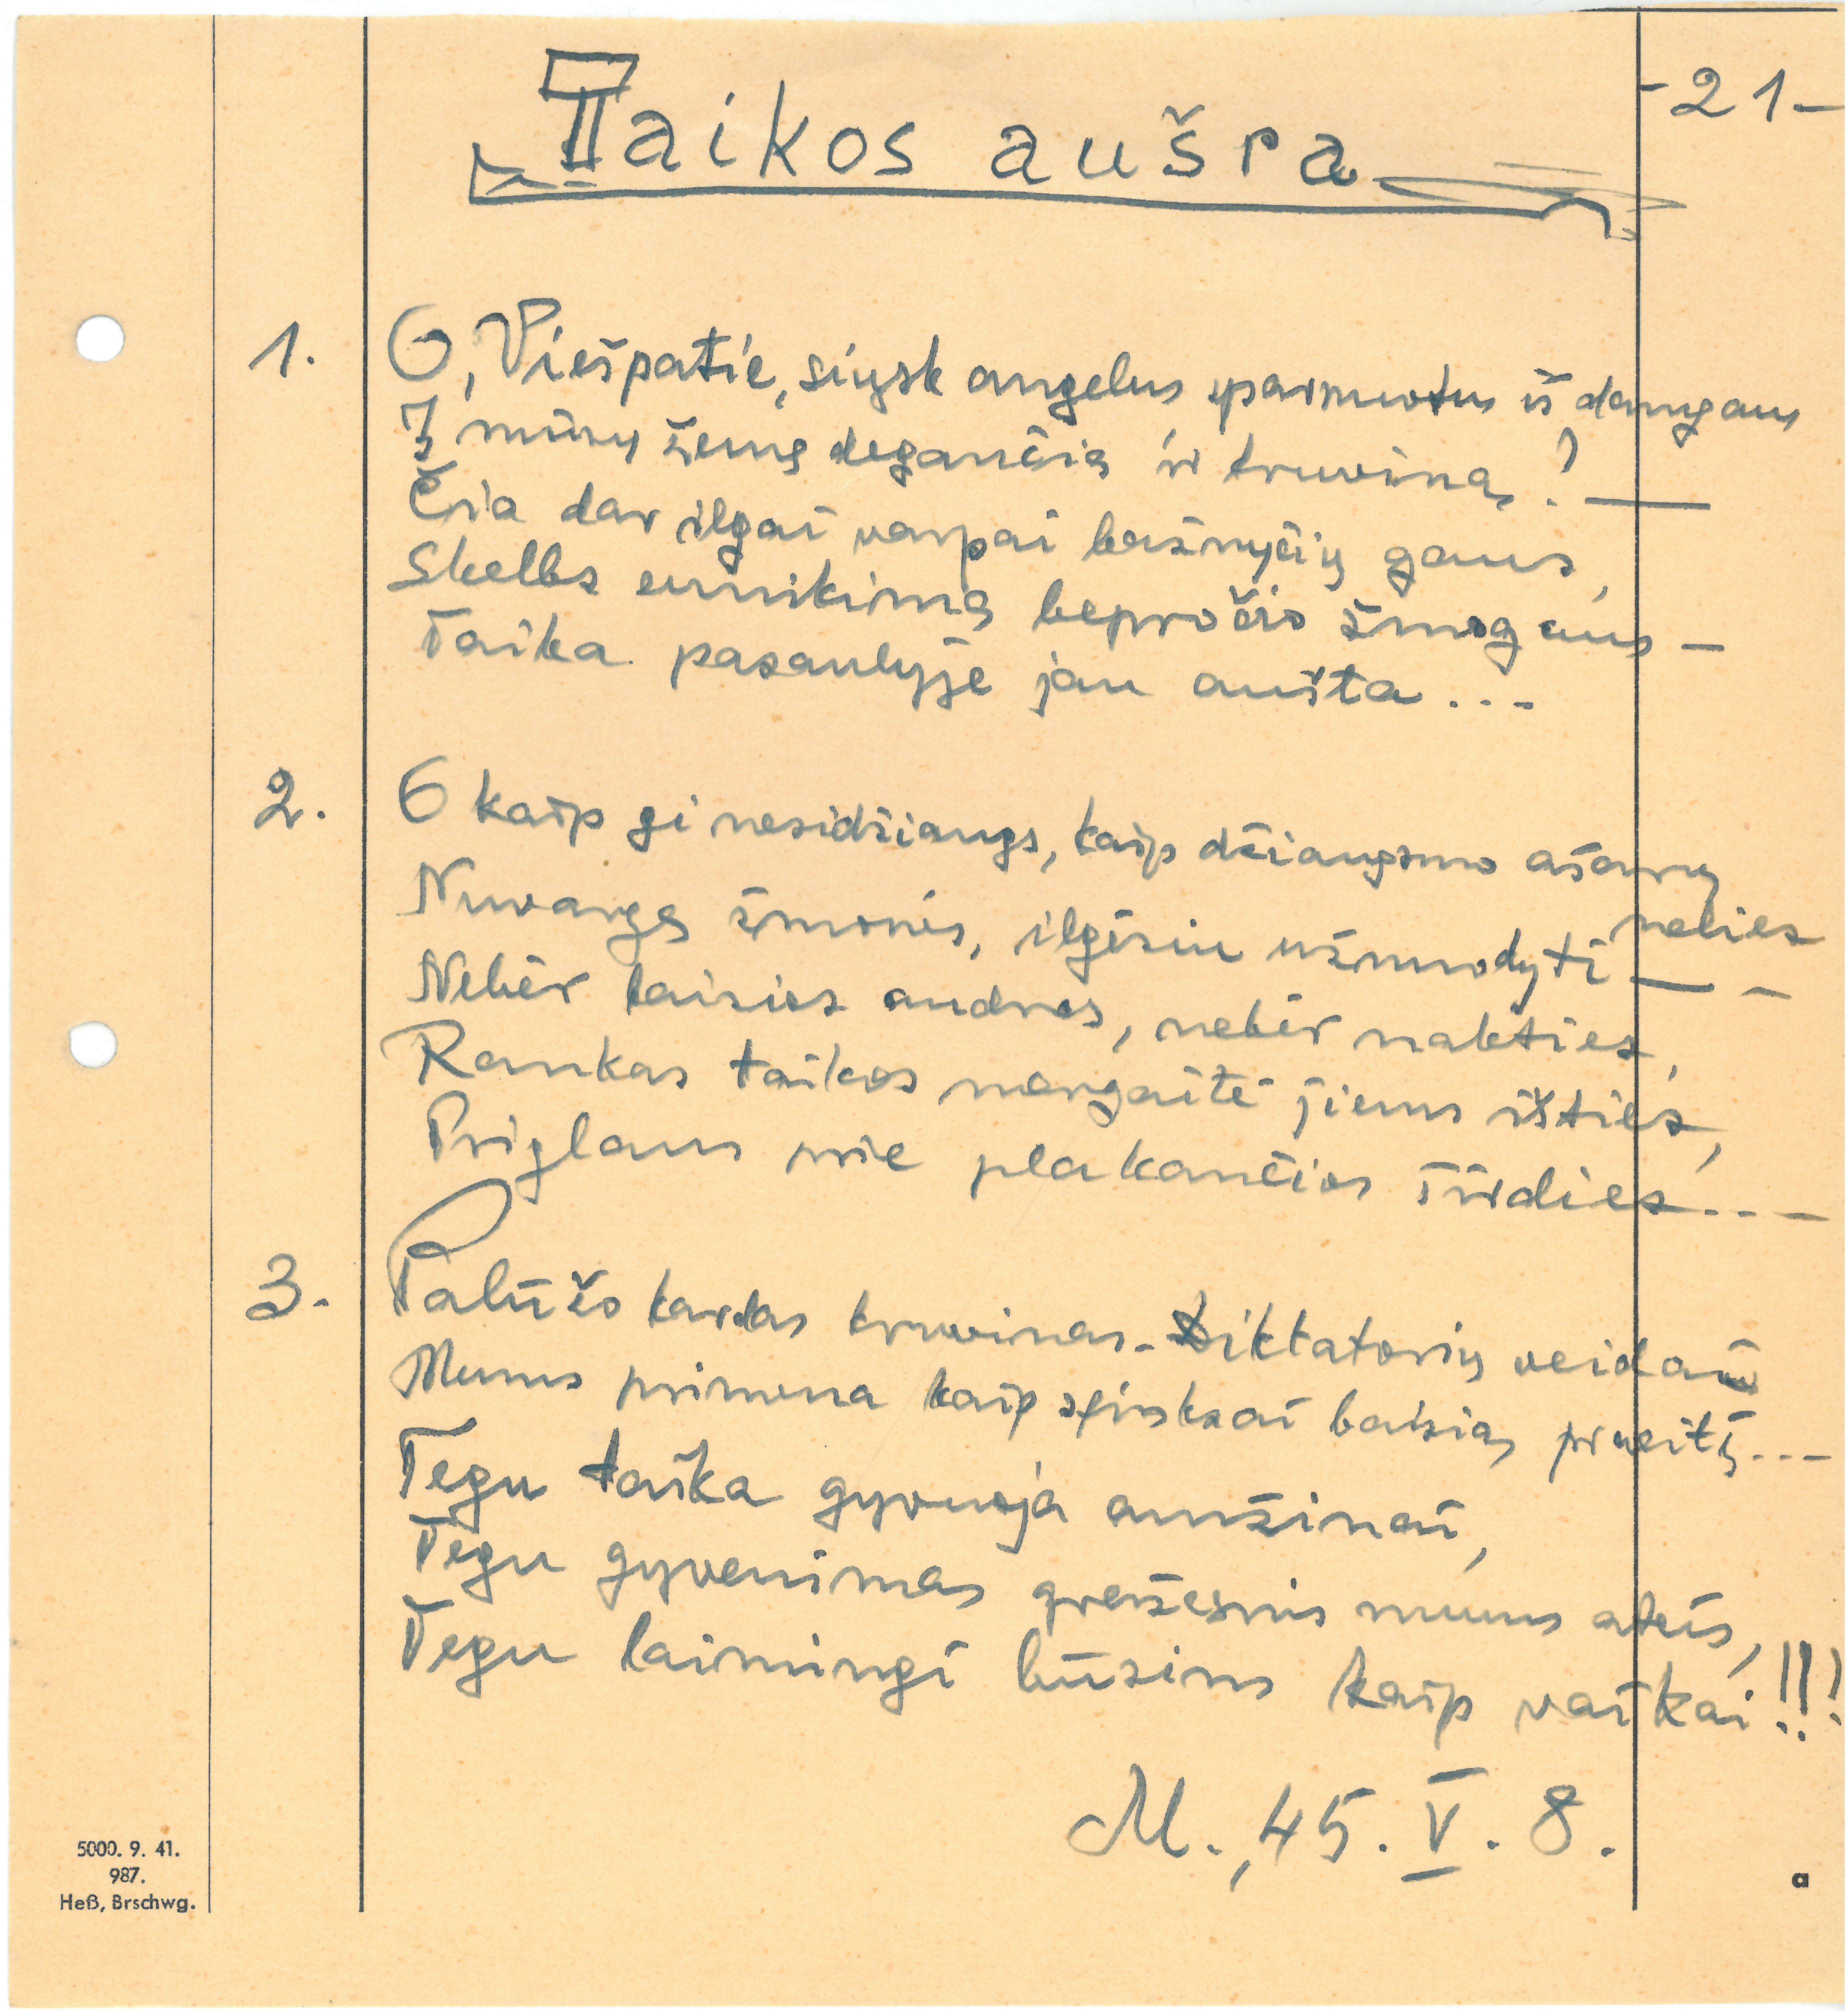 -21-
Taikos aušra
1. O, Viešpatie, siųsk angelus sparnuotus iš dangaus
Į mūsų žemę degančią ir kruviną! —
Čia dar ilgai varpai bažnyčių gaus,
Skelbs sunikimą bepročio žmogaus —
Taika pasaulyje jau aušta...
2. O kaip gi nesidžiaugs, kaip džiaugsmo ašarų
nelies
Nuvargę žmonės, ilgėsiu užnuodyti — —
Nebėr baisios audros, nebėr nakties,
Rankas taikos mergaitė jiems išties,
Priglaus prie plakančios širdies...
3. Palūžo kardas kruvinas. Diktatorių veidai
Mums primena kaip sfinksai baisią praeitį...
Tegu taika gyvuoja amžinai,
Tegu gyvenimas gražesnis mums ateis,
Tegu laimingi būsim kaip vaikai!!!
M., 45. V. 8.
5000. 9. 41.
987.
Heß, Brschwg.
a